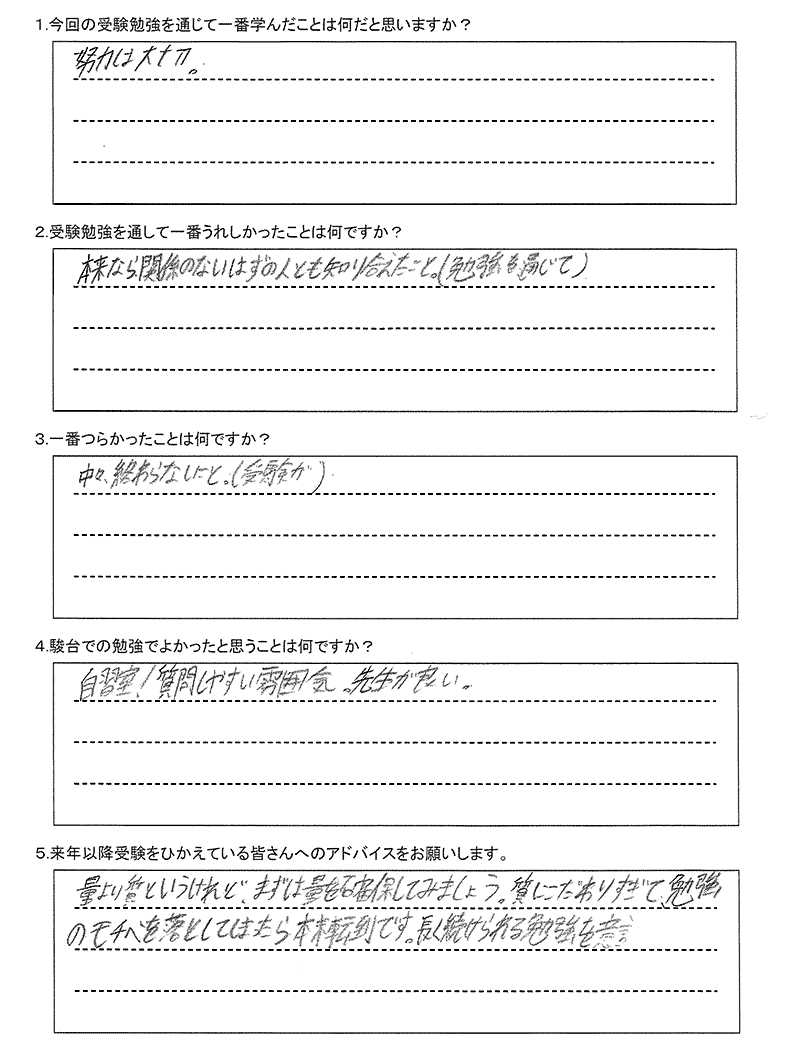 1.今回の受験勉強を通じて一番学んだことは何だと思いますか？
努力は大ナカ。
2.受験勉強を通して一番うれしかったことは何ですか？
本来なら関係のないはずの人とも知り合えたこと。(勉強を通じて)
3.一番つらかったことは何ですか？
中々、終わらないこと。(受験が)
4.駿台での勉強でよかったと思うことは何ですか？
自習室！質問しやすい雰囲気。先生が良い。
5.来年以降受験をひかえている皆さんへのアドバイスをお願いします。
量より質というけれど、まずは量を確保してみましょう。質にこだわりすぎて、勉強
のモチベを落としてはたら本末転到です。長く続けられる勉強を意